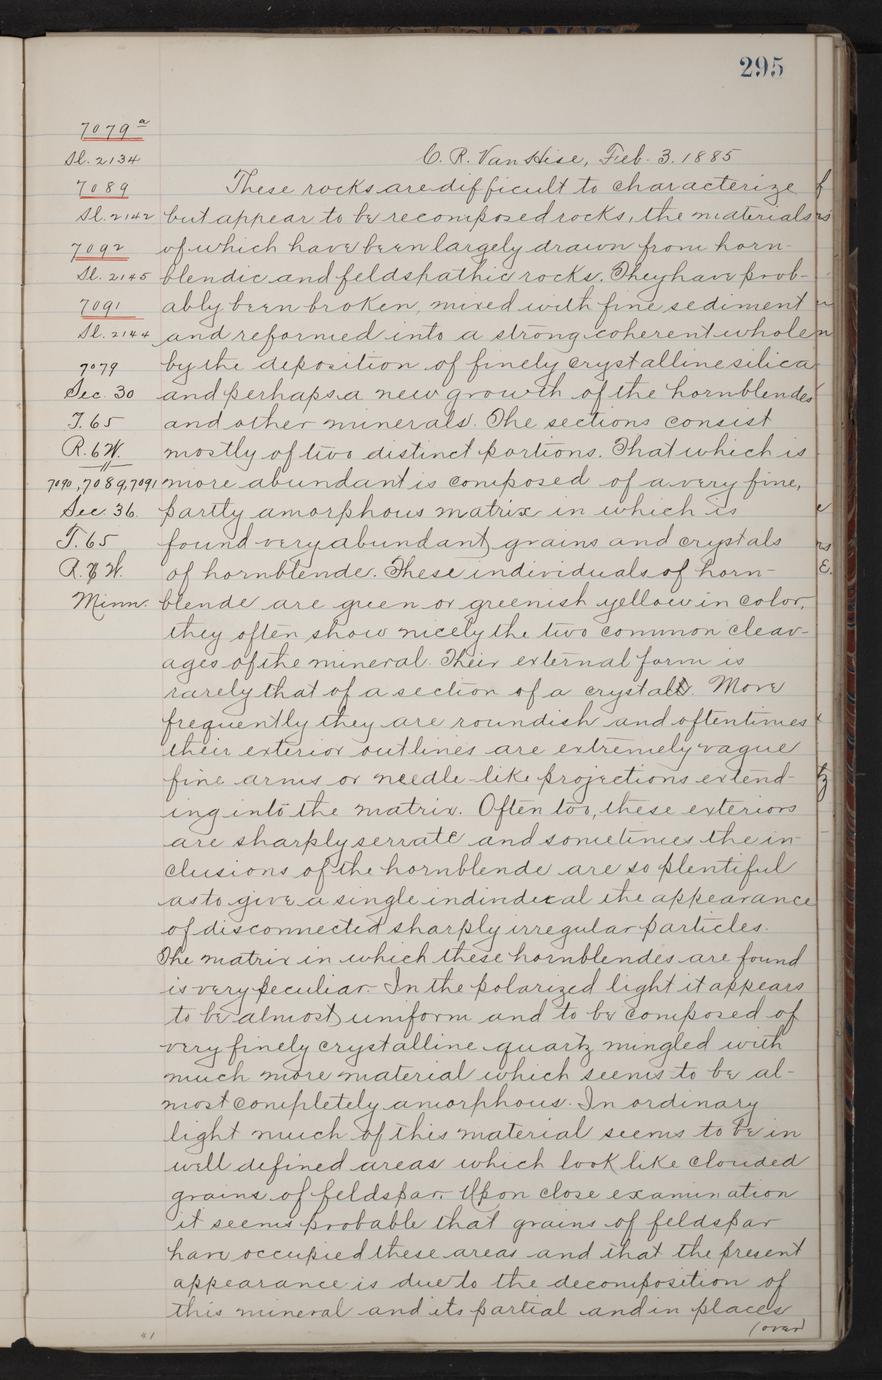 295
7079 a
Sl. 2134
7089
Sl. 2142
7092
Sl. 2145
7091
Sl. 2144
7079
Sec. 30
T. 65
R. 6 W.
"
7090, 7089, 7091
Sec. 36.
T. 65
R. W.
Minn.
C. R. Van Hise, Feb. 3. 1885
These rocks are difficult to characterize
but appear to be recomposed rocks, the materials
of which have been largely drawn from horn-
blendic and feldspathic rocks. They have prob-
ably been broken, mixed with fine sediment
and reformed into a strong coherent whole
by the deposition of finely crystalline silica
and perhaps a new growth of the hornblendes
and other minerals. The sections consist
mostly of two distinct portions. That which is
more abundant is composed of a very fine,
partly amorphous matrix in which is
found very abundant grains and crystals
of hornblende. These individuals of horn-
blende are green or greenish yellow in color,
they often show nicely the two common cleav-
ages of the mineral. Their external form is
rarely that of a section of a crystal. More
frequently they are roundish and oftentimes
their exterior outlines are extremely vague
fine arms or needle-like projections extend-
ing into the matrix. Often too, these exteriors
are sharply serrate and sometimes the in-
clusions of the hornblende are so plentiful
as to give a single individual the appearance
of disconnected sharply irregular particles.
The matrix in which these hornblendes are found
is very peculiar. In the polarized light it appears
to be almost uniform and to be composed of
very finely crystalline quartz mingled with
much more material which seems to be al-
most completely amorphous. In ordinary
light much of this material seems to be in
well defined areas which look like clouded
grains of feldspar. Upon close examination
it seems probable that grains of feldspar
have occupied these areas and that the present
appearance is due to the decomposition of
this mineral and its partial and in places
(over)